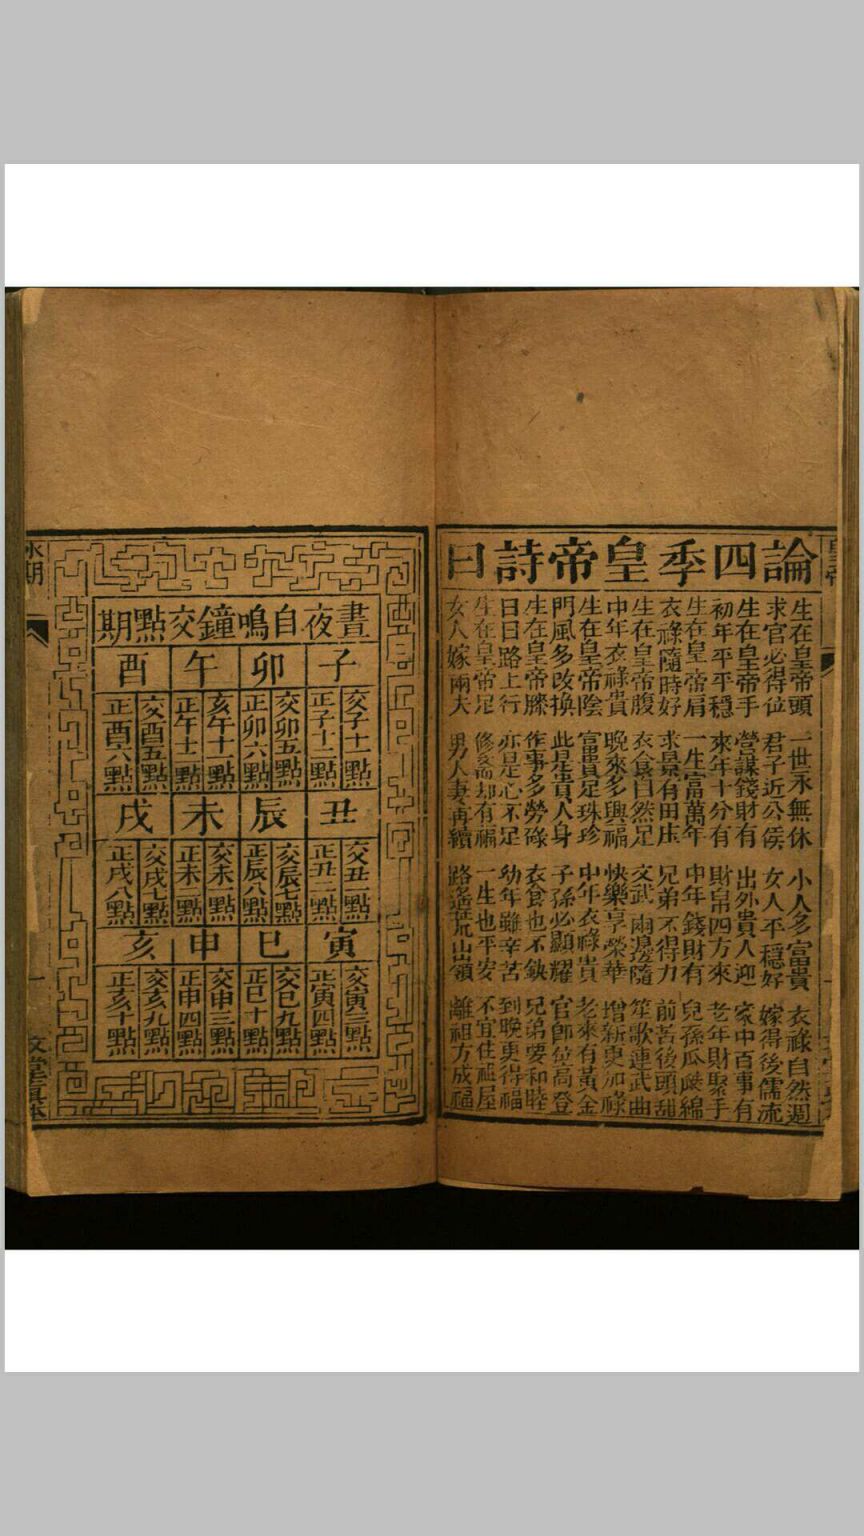 論四季皇帝詩曰
生在皇帝頭 一世永無休 小人多富貴 衣祿自然週
求官必得位 君子近公侯 女人平穩好 嫁得後儒流
生在皇帝手 營謀錢財有 出外貴人迎 家中百事有
初年平平穩 來年十分有 財帛四方來 老年財聚手
生在皇帝肩 一生富萬年 中年錢財有 兒孫瓜瓞綿
衣祿隨時好 求有田庄 兄弟不得力 前苦後頭甜
生在皇帝腹 衣食自然足 文武兩邊隨 笙歌連武曲
中年衣祿貴 晚來多興福 快樂享榮華 增新更加祿
生在皇帝陰 富貴足珠珍 中年衣祿貴 老來有黃金
門風多改換 此是貴人身 子孫必顯耀 官即位高登
生在皇帝膝 作事多勞碌 衣食也不缺 兄弟要和睦
日日路上行 亦是心不足 幼年雖辛苦 到晚更得福
生在皇帝足 修斋却有福 一生也平安 不宜住祖屋
女人嫁兩夫 男人妻再續 路荒山嶺 離祖方成福
晝夜自鳴鐘交點期
子 卯 午 酉
交子十一點 正子十二點 交卯五點 正卯六點 亥午十一點 正午十二點 交酉五點 正酉六點
丑 辰 未 戌
交丑一點 正丑二點 交辰七點 正辰八點 交未一點 正未二點 交戌七點 正戌八點
寅 巳 申 亥
交寅三點 正寅四點 交巳九點 正巳十點 交申三點 正申四點 交亥九點 正亥十點